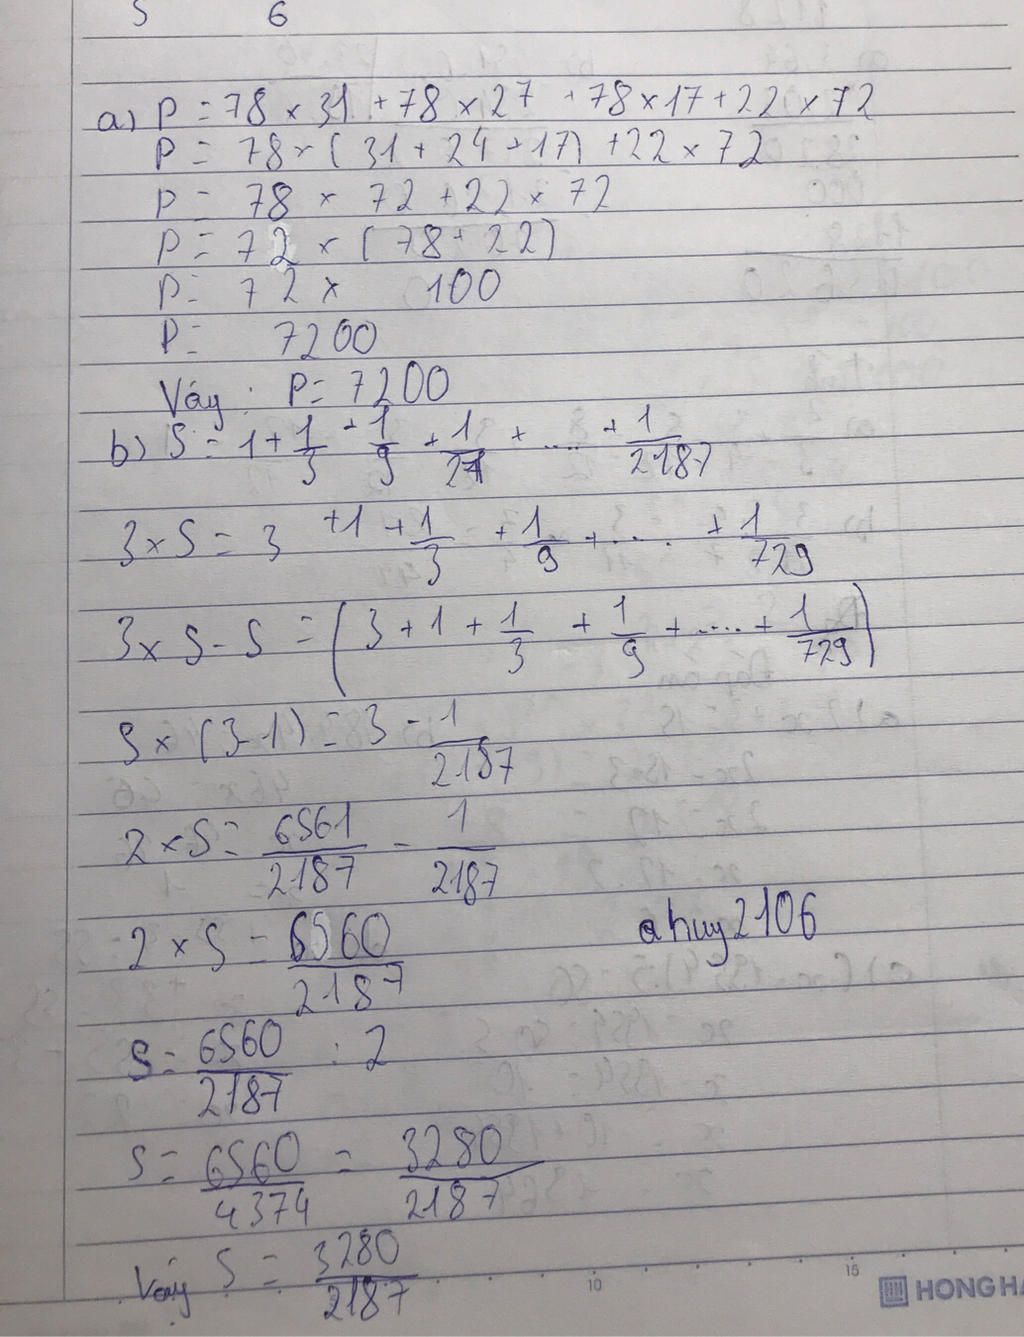 5 6
a) P = 78 × 31 + 78 × 27 + 78 × 17 + 22 × 72
P = 78 × ( 31 + 24 + 17) + 22 × 72
P = 78 × 72 + 22 × 72
P = 72 × (78 + 22)
P = 72 × 100
P = 7200
Váy : P = 7200
b) S = 1 + 1/3 + 1/9 + 1/27 + .... + 1/2187
3 × S = 3 + 1 + 1/3 + 1/9 + .... + 1/729
3 × S - S = ( 3 + 1 + 1/3 + 1/9 + .... + 1/729 )
S × (3 - 1) = 3 - 1/2187
2 × S = 6561/2187 - 1/2187
2 × S = 6560/2187
ahuy2106
S = 6560/2187 : 2
S = 6560/4374 = 3280/2187
Váy S = 3280/2187
10 15
HONG HA